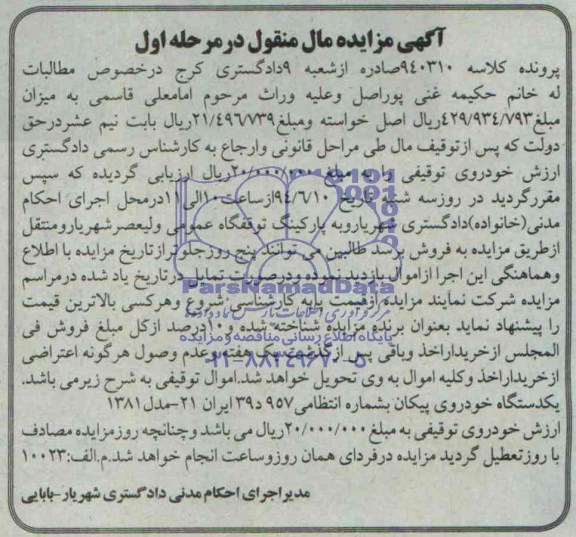 آگهی مزایده مال منقول درمرحله اول
پرونده کلاسه ۹۴۰۳۱۰صادره ازشعبه ۹دادگستری کرج درخصوص مطالبات
له خانم حکیمه غنی پوراصل وعلیه وراث مرحوم امامعلی قاسمی به میزان
مبلغ۴۲۹/۹۳۴/۷۹۳ریال اصل خواسته ومبلغ۲۱/۴۹۶/۷۳۹ریال بابت نیم عشردرحق
دولت که پس ازتوقیف مال طی مراحل قانونی وارجاع به کارشناس رسمی دادگستری
ارزش خودروی توقیفی را به مبلغ ۲۰/۰۰۰/۰۰۰ریال ارزیابی گردیده که سپس
مقررگردید در روزسه شنبه تاریخ ۹۴/۶/۱۰ازساعت۱۰الی۱۱درمحل اجرای احکام
مدنی(خانواده)دادگستری شهریاروبه پارکینگ توقفگاه عمومی ولیعصرشهریارومنتقل
ازطریق مزایده به فروش برسد طالبین می توانند پنج روزجلوترازتاریخ مزایده با اطلاع
وهماهنگی این اجرا ازاموال بازدید نموده ودرصورت تمایل در تاریخ یاد شده درمراسم
مزایده شرکت نمایند مزایده ازقیمت پایه کارشناسی شروع وهرکسی بالاترین قیمت
را پیشنهاد نماید بعنوان برنده مزایده شناخته شده و۱۰درصد ازکل مبلغ فروش فی
المجلس ازخریداراخذ وباقی پس ازگذشت یک هفته وعدم وصول هرگونه اعتراضی
ازخریداراخذ وکلیه اموال به وی تحویل خواهد شد.اموال توقیفی به شرح زیرمی باشد.
یکدستگاه خودروی پیکان بشماره انتظامی۹۵۷ د۳۹ ایران ۲۱-مدل۱۳۸۱
ارزش خودروی توقیفی به مبلغ۲۰/۰۰۰/۰۰۰ریال می باشد وچنانچه روزمزایده مصادف
با روزتعطیل گردید مزایده درفردای همان روزوساعت انجام خواهد شد.م.الف:۱۰۰۲۳
مدیراجرای احکام مدنی دادگستری شهریار-بابایی
ParsNamadData
پایگاه اطلاع رسانی مناقصه و مزایده
۰۲۱-۸۸۳۴۹۶۷۰-۵